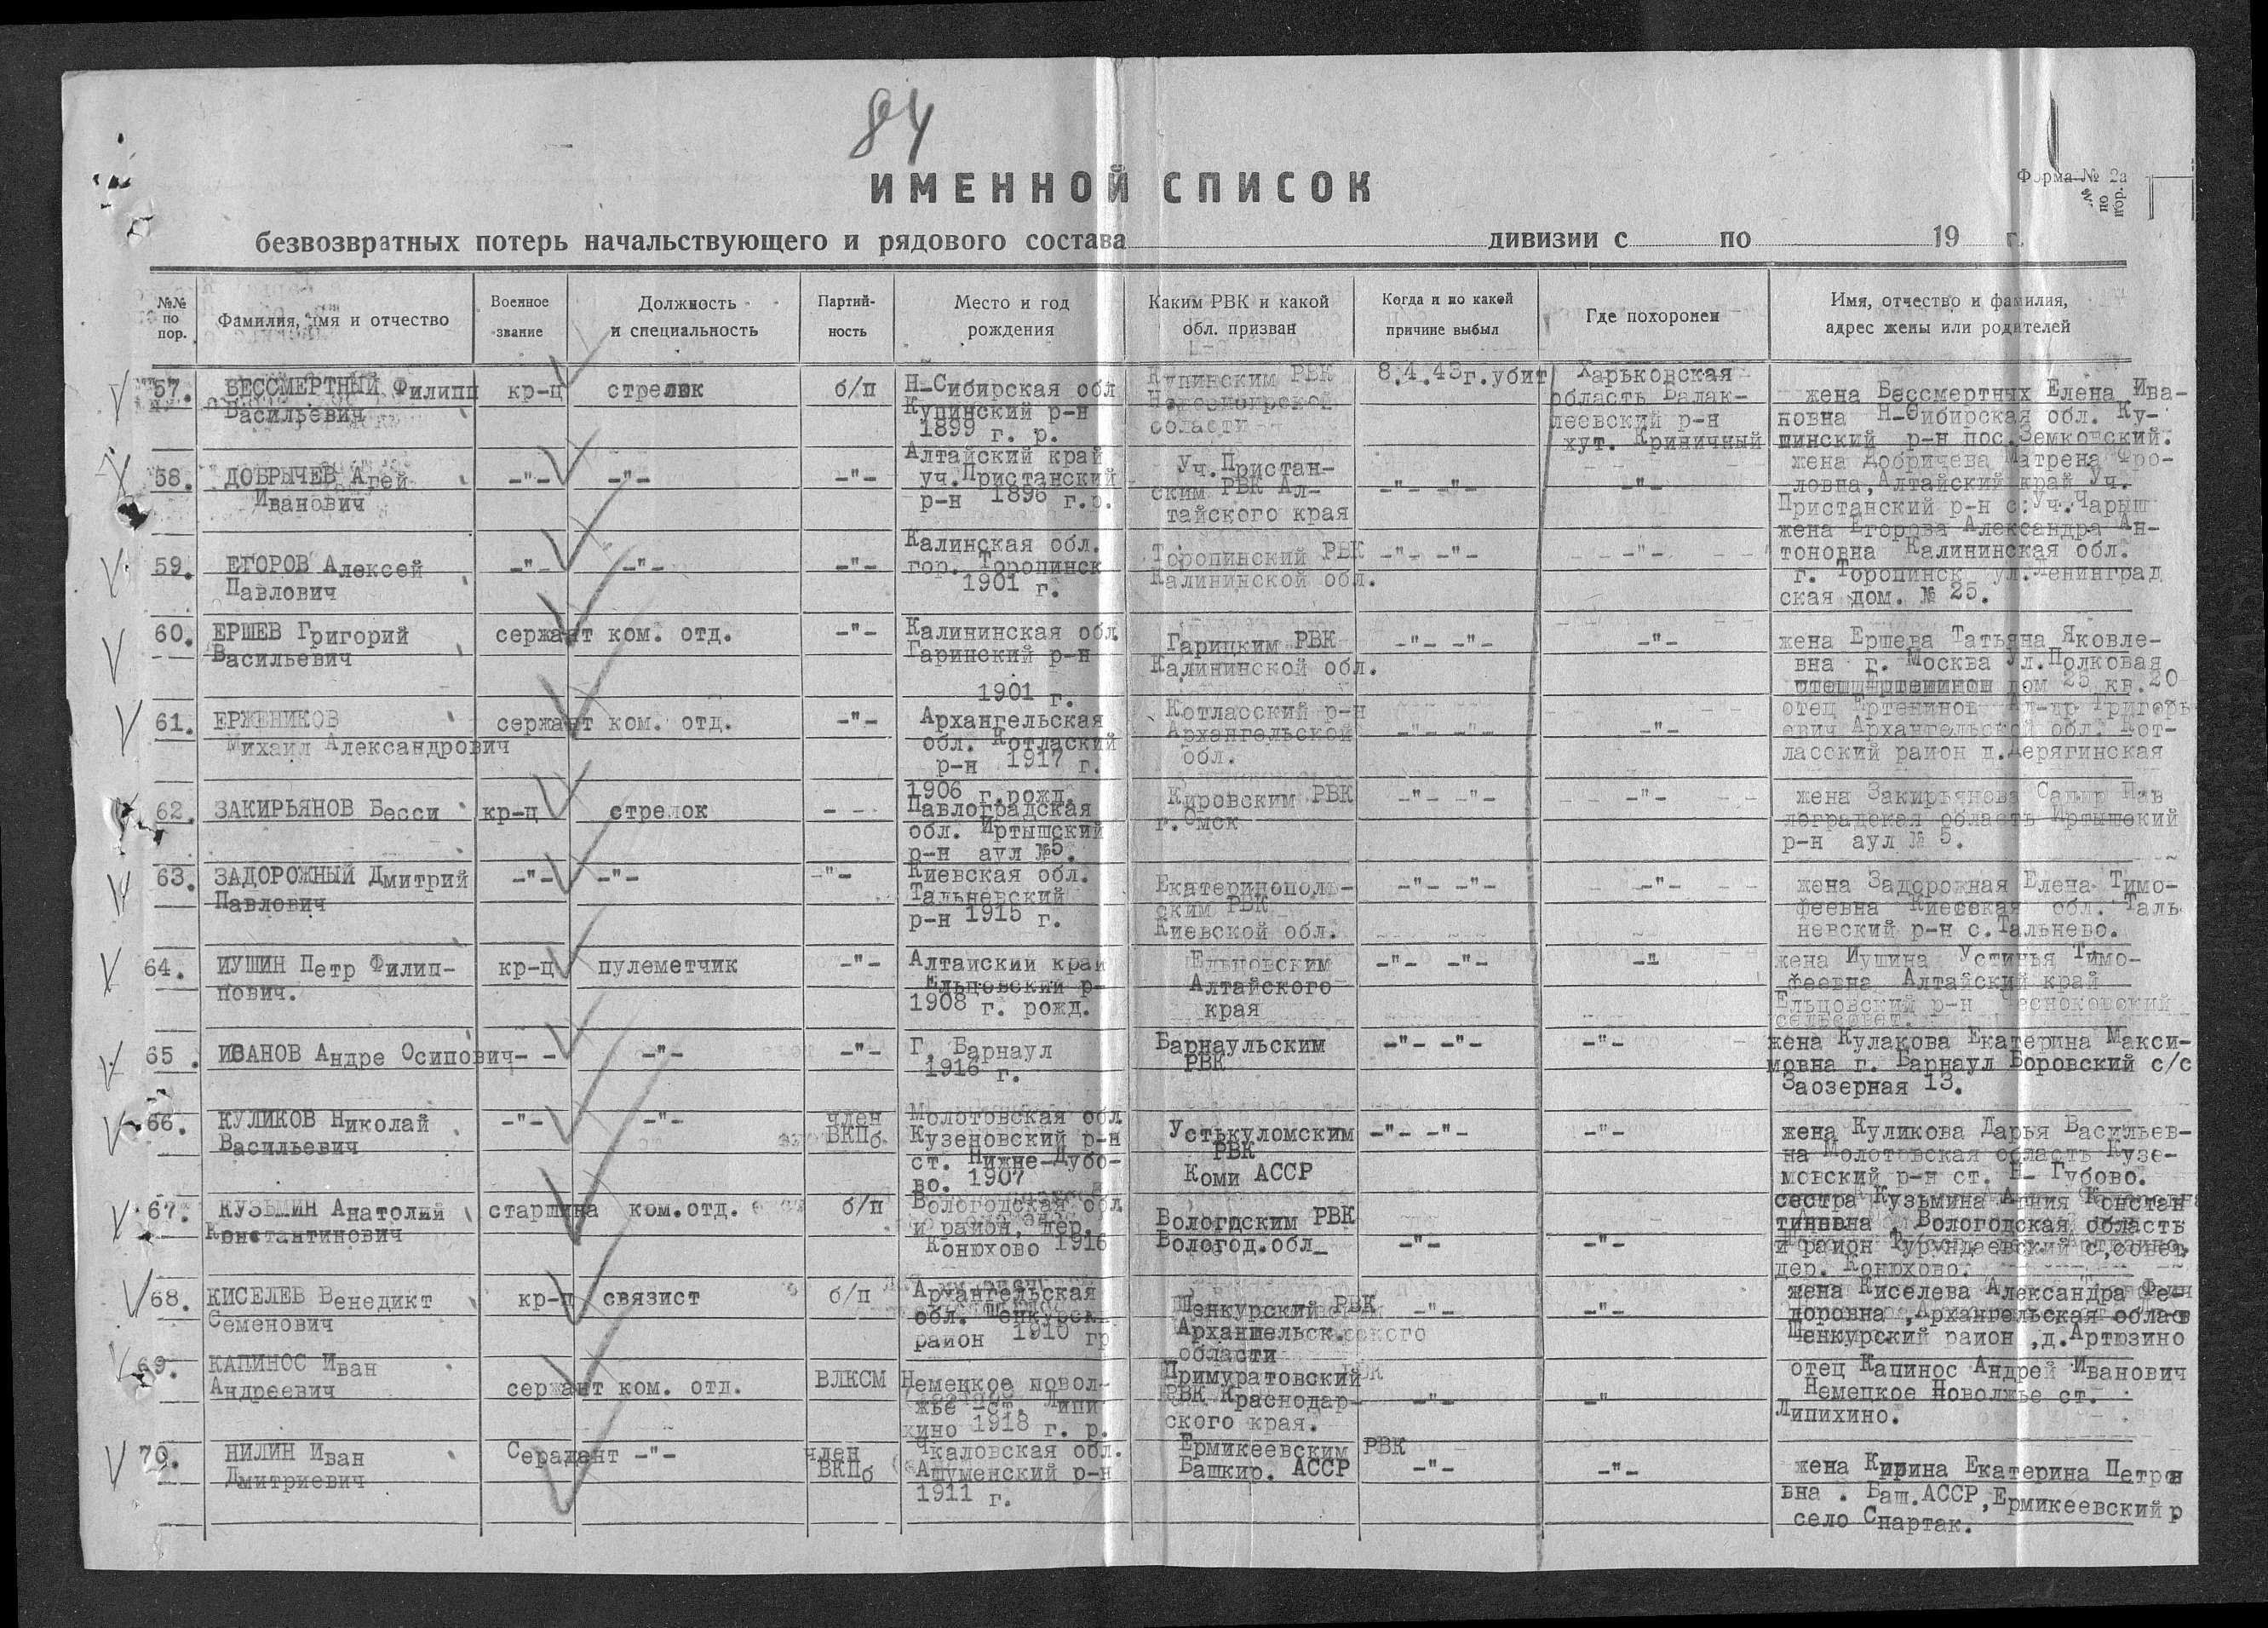 84
ИМЕННОЙ СПИСОК
Форма № 2а
безвозвратных потерь начальствующего и рядового состава дивизии с по 19 г.
№№ по пор.
Фамилия, имя и отчество
Военное звание
Должность и специальность
Партий- ность
Место и год рождения
Каким РВК и какой обл. призван
Когда и по какой причине выбыл
Где похоронен
Имя, отчество и фамилия, адрес жены или родителей
57. БЕССМЕРТНЫЙ Филипп кр-ц стрелок б/п Н-Сибирская обл Купинским РВК 8.4.43г.убит Харьковская
Васильевич Купинский р-н области область Балак- жена Бессмертных Елена Ива-
1899 г. р. леевский р-н новна Н-Сибирская обл. Ку-
хут. Криничный шинский р-н пос.Земковский.
58. ДОБРЫЧЕВ Агей -"- -"- -"- Алтайский край Уч.Пристан- -"- -"- -"- жена Добричева Матрена Фро-
Иванович уч.Пристанский ским РВК Ал- ловна,Алтайский край Уч.
р-н 1896 г.р. тайского края Пристанский р-н с.Уч.Чарыш
59. ЕГОРОВ Алексей -"- -"- -"- Калинская обл. Торопинский РВК -"- -"- -"- жена Егорова Александра Ан-
Павлович гор. Торопинск Калининской обл. тоновна Калининская обл.
1901 г. г. Торопинск ул.Ленинград
ская дом. № 25.
60. ЕРШЕВ Григорий сержант ком. отд. -"- Калининская обл Гарицким РВК -"- -"- -"- жена Ершева Татьяна Яковле-
Васильевич Гаринский р-н Калининской обл. вна г. Москва ул.Полковая
1901 г. дом 25 кв.20
61. ЕРЖЕНИКОВ сержант ком. отд. -"- Архангельская Котласский р-н -"- -"- -"- отец Ал-др Григорь
Михаил Александрович обл. Котлаский Архангельской евич Архангельской обл. Кот-
р-н 1917 г. обл. ласский район д.Дерягинская
62. ЗАКИРЬЯНОВ Бесси кр-ц стрелок - 1906 г.рожд. Кировским РВК -"- -"- -"- жена Закирьянова Пав
Павлоградская г.Омск лоградская область Иртышский
обл. Иртышский р-н аул № 5.
р-н аул №5.
63. ЗАДОРОЖНЫЙ Дмитрий -"- -"- -"- Киевская обл. Екатеринополь- -"- -"- -"- жена Задорожная Елена Тимо-
Павлович Тальневский ским РВК феевна Киевская обл. Таль
р-н 1915 г. Киевской обл. невский р-н с.Тальнево.
64. ИУШИН Петр Филип- кр-ц пулеметчик -"- Алтайский край Ельцовским -"- -"- -"- жена Иушина Устинья Тимо-
пович. Ельцовский р- Алтайского феевна Алтайский край
1908 г. рожд. края Ельцовский р-н Чесноковский
сельсовет.
65. ИВАНОВ Андре Осипович- - -"- -"- Г. Барнаул Барнаульским -"- -"- -"- жена Кулакова Екатерина Макси-
1916 г. РВК мовна г. Барнаул Боровский с/с
Заозерная 13.
66. КУЛИКОВ Николай -"- -"- член Молотовская обл Устькуломским -"- -"- -"- жена Куликова Дарья Васильев-
Васильевич ВКПб Кузеновский р-н РВК на Молотовская область Кузе-
ст. Нижне-Дубо- Коми АССР мовский р-н ст. Н- Губово.
во. 1907
67. КУЗЬМИН Анатолий старшина ком.отд. б/п Вологодская обл Вологдским РВК сестра Кузьмина Агния Констан
Константинович и район, дер. Вологод.обл -"- -"- тиновна Вологодская область
Конюхово 1916 и район Турундаевский с,совет,
дер. Конюхово.
68. КИСЕЛЕВ Венедикт кр-ц связист б/п Архангельская Шенкурский РВК -"- -"- жена Киселева Александра Фе-
Семенович обл. Шенкурск. Архангельск. доровна ,Архангельская област
район 1910 гр области Шенкурский район ,д.Артюзино
69. КАПИНОС Иван сержант ком. отд. ВЛКСМ Немецкое повол- Примуратовский -"- -"- отец Капинос Андрей Иванович
Андреевич жье ст. Липи РВК Краснодар- Немецкое Поволжье ст.
хино 1918 г. р. ского края. Липихино.
70. НИЛИН Иван Серажант -"- член Чкаловская обл. Ермикеевским РВК -"- -"- жена Кирина Екатерина Петро
Дмитриевич ВКПб Ашуменский р-н Башкир. АССР вна . Баш.АССР,Ермикеевский р
1911 г. село Спартак.